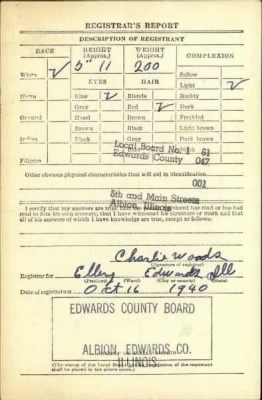 REGISTRAR'S REPORT
DESCRIPTION OF REGISTRANT
RACE HEIGHT (Approx.) WEIGHT (Approx.) COMPLEXION
White ✓ 5" 11 200 Sallow
EYES HAIR Light ✓
Negro Blue ✓ Blonde Ruddy
Gray Red ✓ Dark
Oriental Hazel Brown Freckled
Brown Black Light brown
Indian Black Gray Dark brown
Local Board No. 1 61
Edwards County 047
Filipino Black
Other obvious physical characteristics that will aid in identification
001
5th and Main Streets
Albion, Illinois
I certify that my answers are true; that the
read to him his own answers; that I have witnessed his signature or mark and that
all of his answers of which I have knowledge are true, except as follows:
Charlie Woods
(Signature of registrar)
Registrar for Ellery Edwards Ill
(Precinct) (Ward) (City or county) (State)
Date of registration Oct 16 1940
EDWARDS COUNTY BOARD
ALBION, EDWARDS CO.
ILLINOIS
(The stamp of the Local Board of the registrant
shall be placed in the above space.)